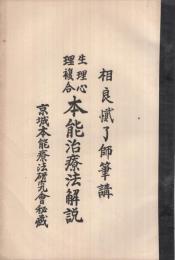 相良慨了師筆講
生理心理複合
本能治療法解説
京城本能療法研究會秘藏